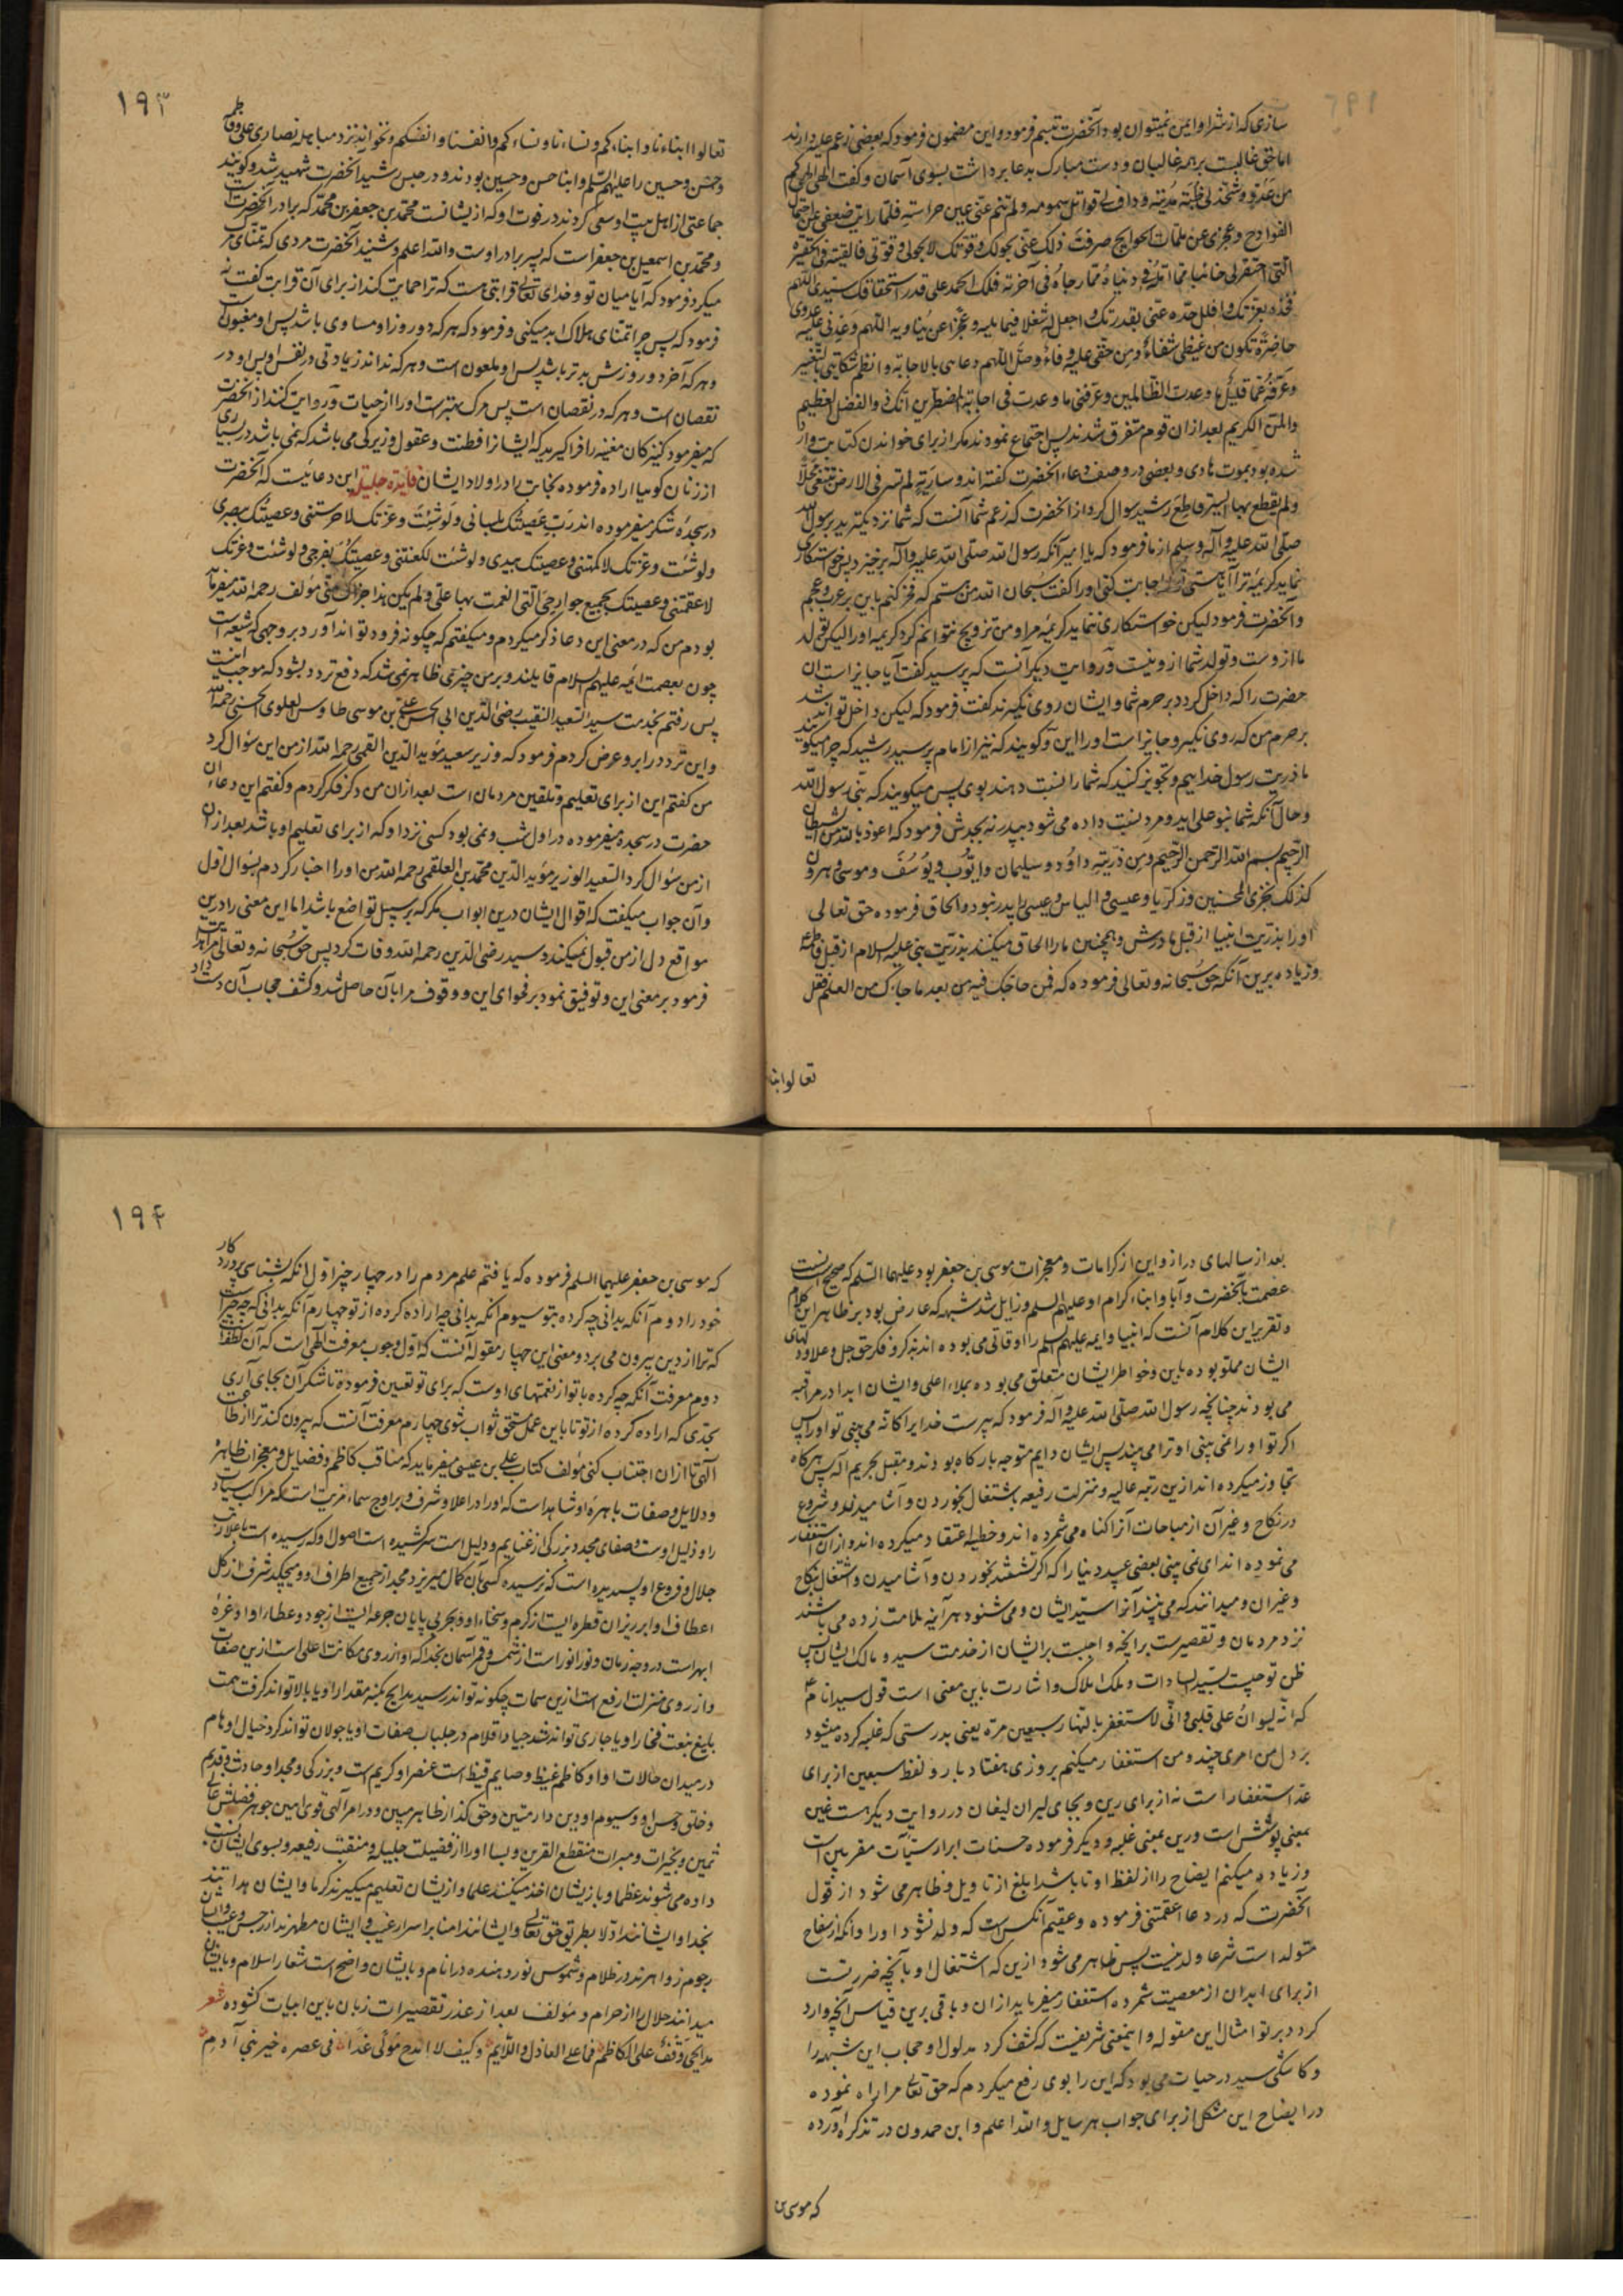 سازی که از شر او ایمن نمیتوان بود آنحضرت تبسم فرمود و این مضمون فرمود که بعضی زعم علیه دارند
اما حق غالبست بر همه غالبان و دست مبارک بدعا برداشت بسوی آسمان و کفت الهی
من عدو و شحذ لی ظبة مدیته و داف لی قواتل سمومه و لم تنم عنی عین حراسته فلما رایت ضعفی عن احتمال
الفوادح و عجزی عن ملمات الحوایج صرفت ذلک عنی بحولک و قوتک لا بحولی و قوتی فالقیته فی الحفیرة
التی احتفر لی خائبا مما امله فی دنیاه رجاه فی آخرته فلک الحمد علی قدر استحقاقک سیدی اللهم
فخذه بعزتک و افلل حده عنی بقدرتک و اجعل له شغلا فیما یلیه و عجزا عمن یناویه اللهم و اعدنی علیه عدوی
حاضرة تکون من غیظی شفاء و من حنقی علیه وفاء و وصل اللهم دعایی بالاجابة و انظم شکایتی بالتغییر
و عرفه عما قلیل ما وعدت الظالمین و عرفنی ما وعدت فی اجابة المضطرین انک ذو الفضل العظیم
و المن الکریم بعد از ان قوم متفرق شدند پس اجتماع نمودند مکر از برای خواندن کتابت وارد
شده بود بموت هادی و بعضی در وصف دعاء آنحضرت کفته اند و ساریة لم تسر فی الارض تبتغی محلا
و لم یقطع بها السیر قاطع رشید سوال کرد از آنحضرت که زعم شما آنست که شما نزدیکترید برسول الله
صلی الله علیه و آله و سلم از ما فرمود که یا امیر آنکه رسول الله صلی الله علیه و آله برخیزد بخواستکاری
نماید کریمه ترا آیا هستی اجابت کنی او را کفت سبحان الله من هستم که فخر کنم باین بر عرب و عجم
و آنحضرت فرمود لیکن خواستکاری ننماید کریمه مرا و من تزویج نتوانم کرد کریمه او را لیکن تولد
ما از وست و تولد شما از و نیست و روایت دیکر آنست که پرسید کفت آیا جایز است ان
حضرت را که داخل کردد بر حرم شما و ایشان روی نکیرند کفت فرمود که لیکن داخل تواند شد
بر حرم من که روی نکیرد و جایز است او را این و کویند که نیز از امام پرسید رشید که چرا میکویند
ما ذریت رسول خداییم و تجویز کنید که شما را نسبت دهند بوی پس میکویند که بنی رسول الله
و حال آنکه شما بنو علی اید و مرد نسبت داده می شود بپدر نه بجدش فرمود که اعوذ بالله من الشیطان
الرجیم بسم الله الرحمن الرحیم و من ذریته داؤد و سلیمان و ایوب و یوسف و موسی و هرون
کذلک نجزی المحسنین و زکریا و عیسی و الیاس و عیسی را پدر نبود و الحاق فرموده حق تعالی
او را بذریت انبیا از قبل مادرش و همچنین ما را الحاق میکنند بذریت نبی علیه السلام از قبل فاطمه
و زیاده برین آنکه حق سبحانه و تعالی فرموده که فمن حاجک فیه من بعد ما جاءک من العلم فقل
تعالوا ابنا
۱۹۳
تعالوا ابناءنا و ابناءکم و نساءنا و نساءکم و انفسنا و انفسکم و نخواند نزد مباهله نصاری علی و فاطمه
و حسن و حسین را علیهم السلم و ابنا حسن و حسین بودند و در حبس رشید آنحضرت شهید شد و کویند
جماعتی از اهل بیت او سعی کردند در فوت او که از ایشانست محمد بن جعفر بن محمد که برادر آنحضرت است
و محمد بن اسمعیل بن جعفر است که پسر برادر اوست و الله اعلم و شنید آنحضرت مردی که تمنای مرک
میکرد فرمود که آیا میان تو و خدای تعالی قرابتی هست که ترا حمایت کند از برای آن قرابت کفت نه
فرمود که پس چرا تمنای هلاک ابد میکنی و فرمود که هر که دو روز او مساوی باشد پس او مغبونست
و هر که آخر دو روزش بدتر باشد پس او ملعون است و هر که نداند زیادتی در نفس او پس او در
نقصان است و هر که در نقصان است پس مرک بهتر است او را از حیات و روایت کنند از آنحضرت
که میفرمود کنیزکان مغنیه را فرا کیرید که ایشانرا فطنت و عقول و زیرکی می باشد که نمی باشد در بسیاری
از زنان کویا اراده فرموده نجابت را در اولاد ایشان فایده جلیله این دعائیست که آنحضرت
در سجده شکر میفرموده اند رب عصیتک بلسانی و لو شئت و عزتک لاخرستنی و عصیتک ببصری
و لو شئت و عزتک لاکمهتنی و عصیتک بیدی و لو شئت لکنعتنی و عصیتک بفرجی و لو شئت و عزتک
لاعقمتنی و عصیتک بجمیع جوارحی التی انعمت بها علی و لم یکن هذا جزاک منی مؤلف رحمه الله میفرماید
بودم من که در معنی این دعا ذکر میکردم و میکفتم که چکونه فرود تواند آورد بر وجهی که شیعه است
چون بعصمت ائمه علیهم السلام قایلند و بر من چیزی ظاهر نمی شد که دفع تردد بشود که موجب اینست
پس رفتم بخدمت سید السعید النقیب رضی الدین ابی الحسن علی بن موسی طاوس العلوی الحسنی رحمه الله
و این تردد را برو عرض کردم فرمود که وزیر سعید مؤید الدین القمی رحمه الله از من این سؤال کرد
من کفتم این از برای تعلیم و تلقین مردمان است بعد از ان من دکر فکر کردم و کفتم این دعاء ان
حضرت در سجده میفرموده در اول شب و نمی بود کسی نزد او که از برای تعلیم او باشد بعد از ان
از من سؤال کرد السعید الوزیر مؤید الدین محمد بن العلقمی رحمه الله من او را اخبار کردم بسؤال اول
و آن جواب میکفت که اقوال ایشان درین ابواب مکر که بر سبیل تواضع باشد اما این معنی را درین
مواقع دل از من قبول نمیکند و سید رضی الدین رحمه الله وفات کرد پس حق سبحانه و تعالی مرا هدایت
فرمود بر معنی این و توفیق نمود بر فحوای این و وقوف مرا بآن حاصل شد و کشف حجاب آن دست داد
بعد از سالهای دراز و این از کرامات و معجزات موسی بن جعفر بود علیهما السلم که صحیح است
عصمت بآنحضرت و آبا و ابناء کرام او علیهم السلم و زایل شد شبهه که عارض بود بر ظاهر این کلام
و تقریر این کلام آنست که انبیا و ایمه علیهم السلم را اوقاتی می بوده اند بذکر و فکر حق جل و علا و دلهای
ایشان مملو بوده باین و خواطر ایشان متعلق می بوده بملاء اعلی و ایشان ابدا در مراقبه
می بودند چنانچه رسول الله صلی الله علیه و آله فرمود که بپرست خدایرا کانه می بینی تو او را پس
اکر تو او را نمی بینی او ترا می بیند پس ایشان دایم متوجه بارکاه بودند و مقبل بحریم اله پس هرکاه
تجاوز میکرده اند ازین رتبه عالیه و منزلت رفیعه باشتغال بخوردن و آشامیدن و شروع
در نکاح و غیر آن از مباحات آنرا کناه می شمرده اند و خطیه اعتقاد میکرده اند و از ان استغفار
می نموده اند ای نمی بینی بعضی عبید دینا را که اکر نشستند بخوردن و آشامیدن و اشتغال بنکاح
و غیر ان و میدانند که می بیند آنرا سید ایشان و می شنود هر آینه ملامت زده می باشند
نزد مردمان و تقصیرست بر آنچه واجبست بر ایشان از خدمت سید و مالک ایشان پس
ظن تو چیست بسید السادات و ملک املاک و اشارت باین معنی است قول سید انام
که انه لیران علی قلبی و انی لاستغفر بالنهار سبعین مرة یعنی بدرستی که غلبه کرده میشود
بر دل من امری چند و من استغفار میکنم بروزی هفتاد بار و لفظ سبعین از برای
عد استغفار است نه از برای رین و بجای لیران لیغان در روایت دیکر هست غین
بمعنی پوشش است و رین بمعنی غلبه و دیکر فرموده حسنات ابرار سیآت مقربین است
و زیاده میکنم ایضاح را از لفظ او تا باشد ابلغ از تاویل و ظاهر می شود از قول
آنحضرت که در دعا اعقمتنی فرموده و عقیم آنکس است که ولد نشود او را و آنکه از سفاح
متولد است شرعا ولد نیست پس ظاهر می شود ازین که اشتغال او بآنچه ضرریست
از برای ابدان از معصیت شمرده استغفار میفرماید از ان و باقی برین قیاس آنچه وارد
کردد بر تو امثال این مقوله و اینمعنی شریفست که کشف کرد مدلول او حجاب این شبهه را
و کاشکی سید در حیات می بود که این را بوی رفع میکردم که حق تعالی مرا راه نموده
در ایضاح این مشکل از برای جواب هر سایل و الله اعلم و ابن حمدون در تذکره آورده
که موسی بن
۱۹۴
که موسی بن جعفر علیهما السلم فرموده که یافتم علم مردم را در چهار چیز اول آنکه بشناسی پروردکار
خود را دوم آنکه بدانی چه کرده بتو سیوم آنکه بدانی چه اراده کرده از تو چهارم آنکه بدانی که چه چیز است
که ترا از دین بیرون می برد و معنی این چهار مقوله آنست که اول وجوب معرفت الهی است که آن لطفهاست
دوم معرفت آنکه چه کرده با تو از نعمتهای اوست که برای تو تعیین فرموده تا شکر آن بجای آری
بحدی که اراده کرده از تو تا باین عمل مستحق ثواب شوی چهارم معرفت آنست که بیرون کند ترا از طاعت
الهی تا از ان اجتناب کنی مؤلف کتاب علی بن عیسی میفرماید که مناقب کاظم و فضایل و معجزات ظاهره
و دلایل و صفات باهره او شاهد است که او را در اعلاء شرف و بر اوج سماء مزیت است که مراکب سیادت
راو ذلیل اوست و صفای مجد و بزرکی از غنایم و دلیل است سرکشیده است اصول او که رسیده است باعلا رتب
جلال و فروع او پسندیده است که نرسیده کسی بآن کمال میریزد مجد از جمیع اطراف او و میچکد شرف از کل
اعطاف او ابر ریزان قطره ایست از کرم و سخاء او و بحر بی پایان جرعه ایست از جود و عطاء او و غره
ابهر است در وجه زمان و نور انور است از شمس و قمر آسمان بخدا که او از روی مکانت اعلی است ازین صفات
و از روی منزلت ارفع است ازین سمات چکونه تواند رسید مدایح بکنه مقدار او یا بالا تواند کرفت همت
بلیغ بنعت فخار او یا جاری تواند شد جیاد اقلام در جلباب صفات او یا جولان تواند کرد خیال اوهام
در میدان حالات او و او کاظم غیظ و صایم قیظ است عنصر او کریم است و بزرکی و مجد او حادث و قدیم
و خلق و حسن او وسیم و او بدین دار متین و حق کذار ظاهر مبین و در امر آلهی قوی امین جوهر فضلش عالی
ثمین و بخیرات و مبرات منقطع القرین و بسا او را از فضیلت جلیله و منقبت رفیعه و بسوی ایشان نسبت
داده می شوند عظما و بازیشان اخذ میکنند علما و ازیشان تعلیم میکیرند کرما و ایشان هداتند
بخدا و ایشانند ادلا بطریق حق تعالی و ایشانند امنا بر اسرار غیب و ایشان مطهرند از رجس و عیب و ایشان
نجوم زواهرند در ظلام و شموس نور دهنده در انام و بایشان واضح است شعار اسلام و بایشان
میدانند حلال را از حرام و مؤلف بعد از عذر تقصیرات زبان باین ابیات کشوده شعر
مدایحی وقف علی الکاظم فما علی العاذل و اللایم و کیف لا امدح مولی غدا فی عصره خیر بنی آدم